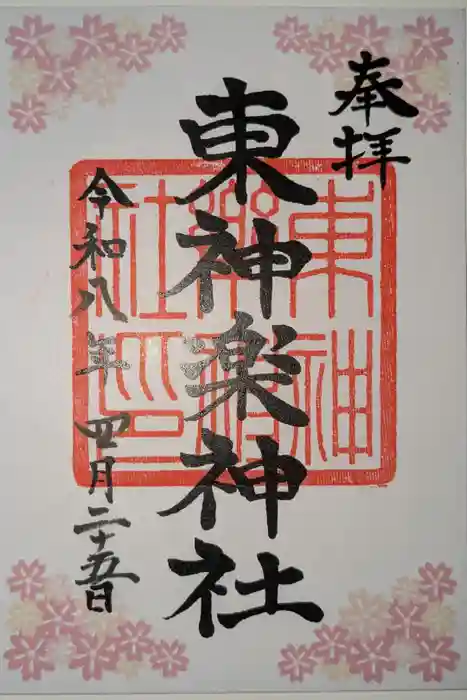 奉拝
東神楽神社
令和八年四月二十五日
東神
楽神
社印